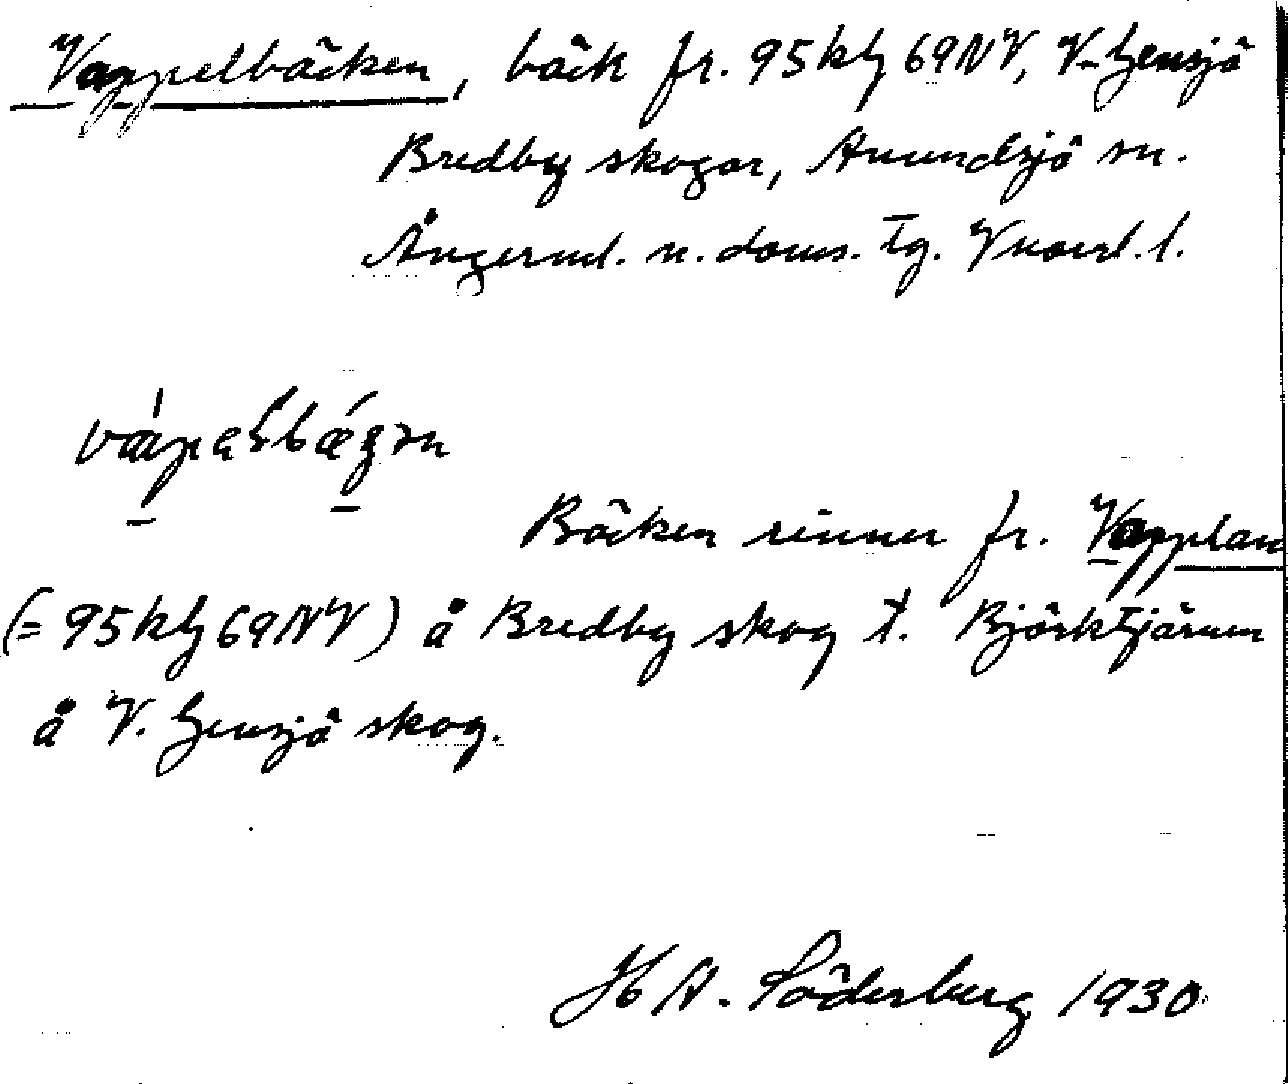 Vappelbäcken, bäck fr. 95kbg69NV, V. Gensjö
Bredby skogar, Anundsjö sn.
Ångerml. n. doms. tg. Vnorrl. l.
Bäcken rinner fr. Vapplan
(= 95kbg69NV) å Bredby skog t. Björktjärnen
å V. Gensjö skog.
H A. Söderberg 1930